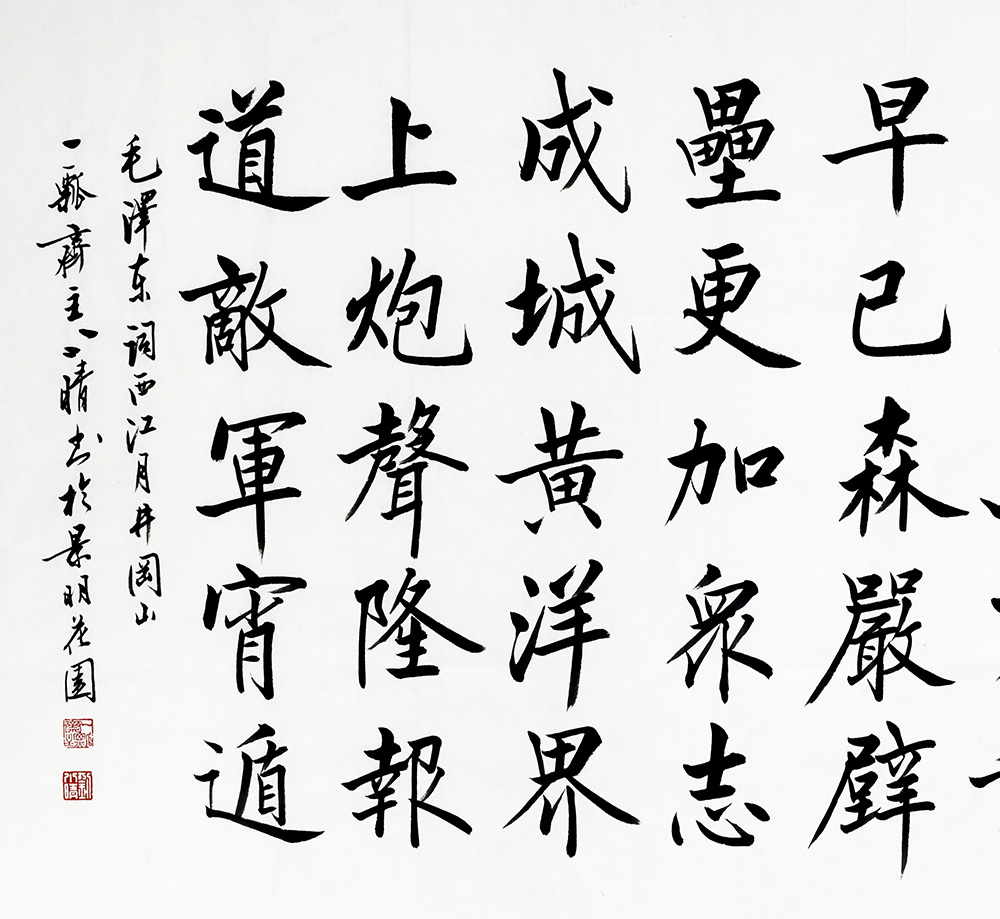 早已森嚴壁
壘更加衆志
成城黃洋界
上炮聲隆報
道敵軍宵遁
毛澤东詞西江月井岡山
一瓢齋主八晴书於景明花園